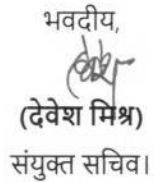 भवदीय,
(देवेश मिश्र)
संयुक्त सचिव।